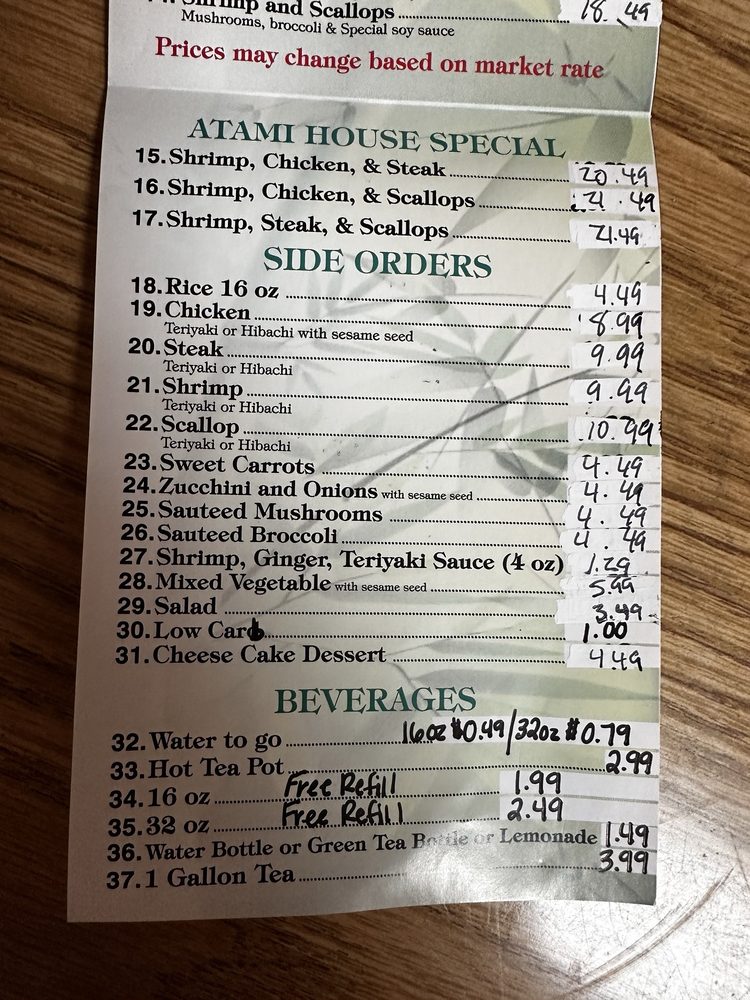 Shrimp and Scallops 18.49
Mushrooms, broccoli & Special soy sauce
Prices may change based on market rate
ATAMI HOUSE SPECIAL
15. Shrimp, Chicken, & Steak 20.49
16. Shrimp, Chicken, & Scallops 21.49
17. Shrimp, Steak, & Scallops 21.49
SIDE ORDERS
18. Rice 16 oz 4.49
19. Chicken 8.99
Teriyaki or Hibachi with sesame seed
20. Steak 9.99
Teriyaki or Hibachi
21. Shrimp 9.99
Teriyaki or Hibachi
22. Scallop 10.99
Teriyaki or Hibachi
23. Sweet Carrots 4.49
24. Zucchini and Onions with sesame seed 4.49
25. Sauteed Mushrooms 4.49
26. Sauteed Broccoli 4.49
27. Shrimp, Ginger, Teriyaki Sauce (4 oz) 1.29
28. Mixed Vegetable with sesame seed 5.99
29. Salad 3.49
30. Low Carb 1.00
31. Cheese Cake Dessert 4.49
BEVERAGES
32. Water to go 16oz $0.49/32oz $0.79
33. Hot Tea Pot 2.99
34. 16 oz Free Refill 1.99
35. 32 oz Free Refill 2.49
36. Water Bottle or Green Tea Bottle or Lemonade 1.49
37. 1 Gallon Tea 3.99